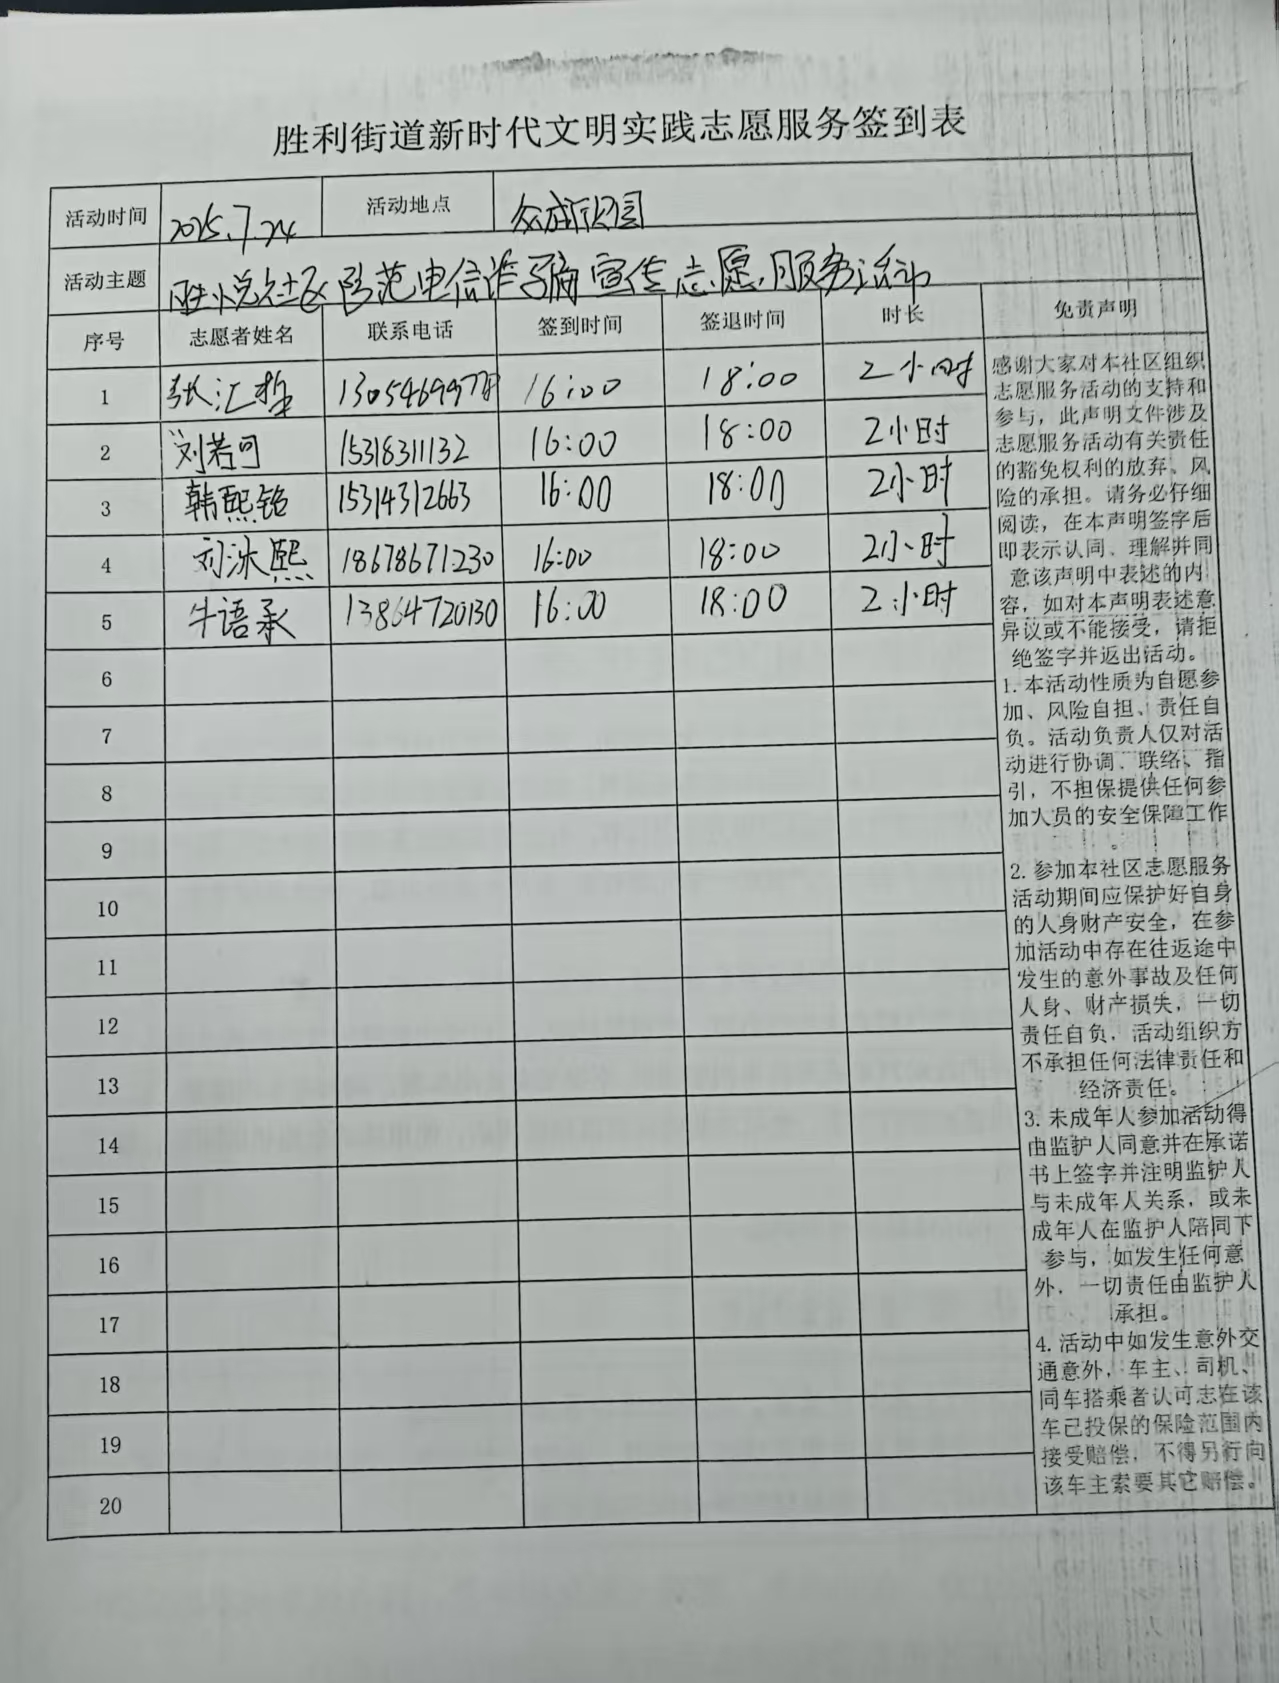 胜利街道新时代文明实践志愿服务签到表
活动时间 2025.7.24 活动地点 众成
活动主题 胜悦社区防范电信诈骗宣传志愿服务活动
序号 志愿者姓名 联系电话 签到时间 签退时间 时长 免责声明
1 张汇哲 16:00 18:00 2小时
2 刘若可 15318311132 16:00 18:00 2小时
3 韩熙铭 15314312663 16:00 18:00 2小时
4 刘沐熙 18678671230 16:00 18:00 2小时
5 牛语承 13864720130 16:00 18:00 2小时
6
7
8
9
10
11
12
13
14
15
16
17
18
19
20
感谢大家对本社区组织
志愿服务活动的支持和
参与，此声明文件涉及
志愿服务活动有关责任
的豁免权利的放弃、风
险的承担。请务必仔细
阅读，在本声明签字后
即表示认同、理解并同
意该声明中表述的内
容，如对本声明表述意
异议或不能接受，请拒
绝签字并返出活动。
1. 本活动性质为自愿参
加、风险自担、责任自
负。活动负责人仅对活
动进行协调、联络、指
引，不担保提供任何参
加人员的安全保障工作
。
2. 参加本社区志愿服务
活动期间应保护好自身
的人身财产安全，在参
加活动中存在往返途中
发生的意外事故及任何
人身、财产损失，一切
责任自负，活动组织方
不承担任何法律责任和
经济责任。
3. 未成年人参加活动得
由监护人同意并在承诺
书上签字并注明监护人
与未成年人关系，或未
成年人在监护人陪同下
参与，如发生任何意
外，一切责任由监护人
承担。
4. 活动中如发生意外交
通意外，车主、司机、
同车搭乘者认可志在该
车已投保的保险范围内
接受赔偿，不得另行向
该车主索要其它赔偿。